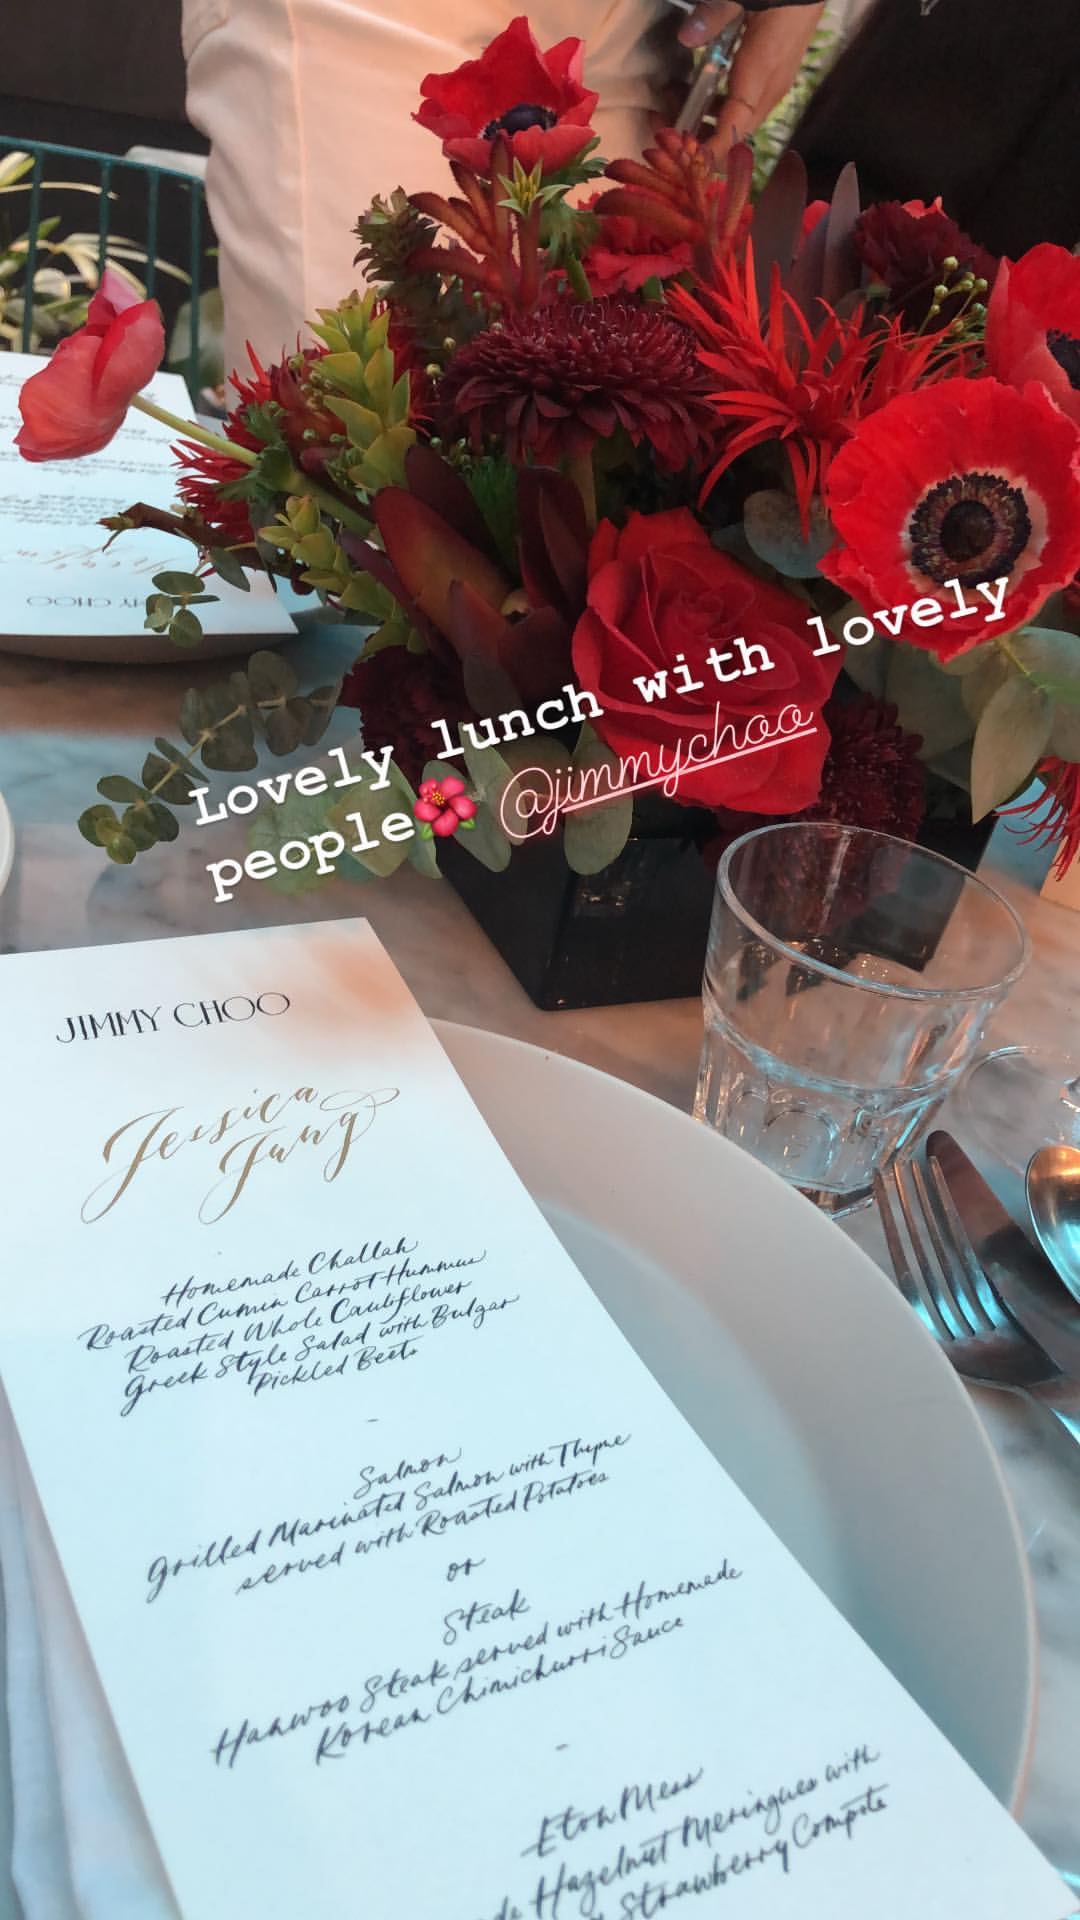 Lovely lunch with lovely
people @jimmychoo
JIMMY CHOO
Jessica
Jung
Homemade Challah
Roasted Cumin Carrot Hummus
Roasted Whole Cauliflower
Greek Style Salad with Bulgar
Pickled Beets
-
Salmon
Grilled Marinated Salmon with Thyme
served with Roasted Potatoes
or
Steak
Hanwoo Steak served with Homemade
Korean Chimichurri Sauce
-
Eton Mess
Hazelnut Meringues with
Strawberry Compote